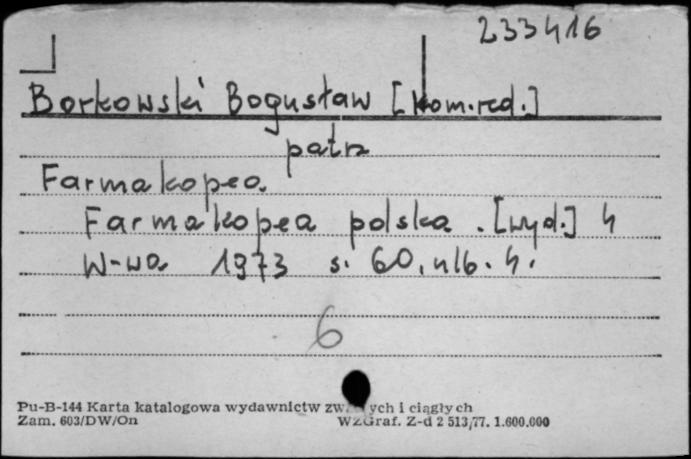 233416
Borkowski Bogusław [kom.red.]
patrz
Farmakopea.
Farmakopea polska. [wyd.] 4
W-wa 1973 s. 60, nlb. 4.
6
Pu-B-144 Karta katalogowa wydawnictw i ciągłych
Zam. 603/DW/On WZGraf. Z-d 2 513/77. 1.600.000